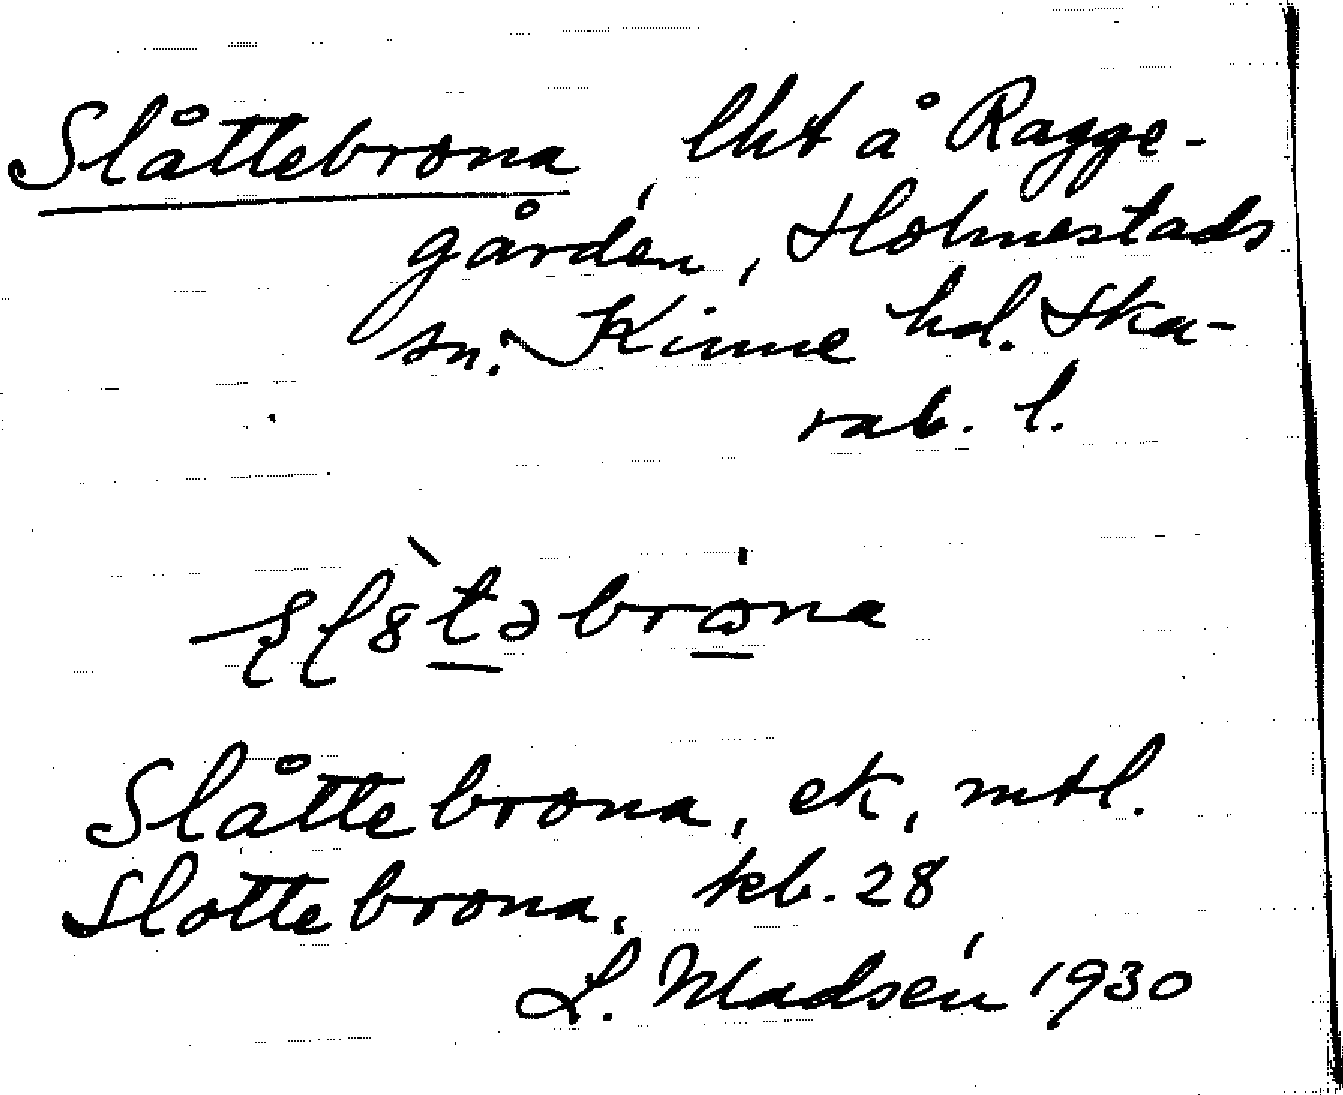 Slåttebrona, lht å Ragge-
gården, Holmestads
sn. Kinne hd. Ska-
rab. l.
Slåttebrona, ek, mtl.
Slottebrona, kb. 28
L. Madsén 1930